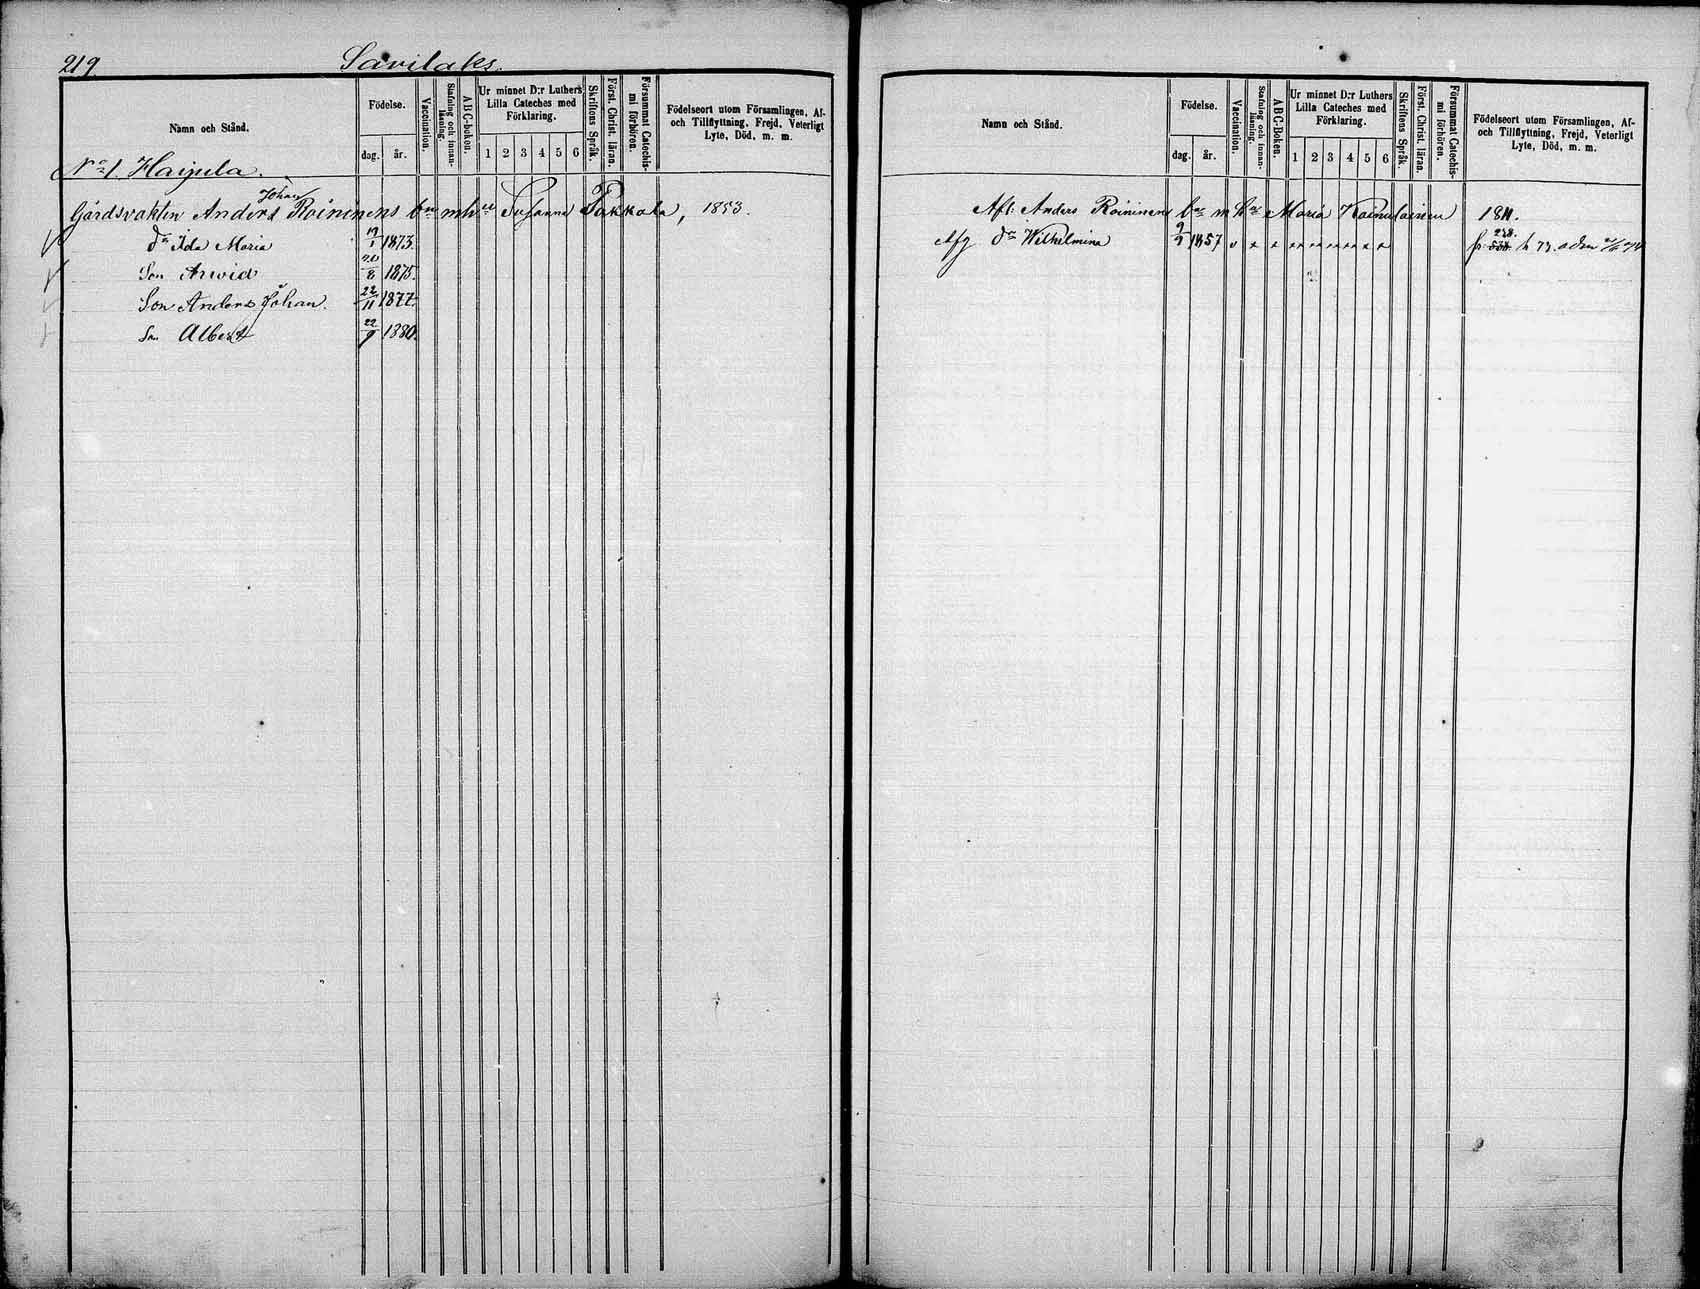 219
Savilaks.
Namn och Stånd.
Födelse.
dag.
år.
Vaccination.
Stafning och innan-
läsning.
ABC-boken.
Ur minnet D:r Luthers
Lilla Cateches med
Förklaring.
1 2 3 4 5 6
Skriftens Språk.
Först. Christ. läran.
Försummat Catechis-
mi förhören.
Födelseort utom Församlingen, Af-
och Tillflyttning, Frejd, Veterligt
Lyte, Död, m. m.
No 1. Haijula.
Johan
Gårdsvakten Anders Roininens bn m h Susanna Takkala, 1853.
dr Ida Maria 19/1 1873.
Son Arvid 20/8 1875.
Son Anders Johan. 22/11 1877.
Son Albert 22/9 1880.
Namn och Stånd.
Födelse.
dag.
år.
Vaccination.
Stafning och innan-
läsning.
ABC-Boken.
Ur minnet D:r Luthers
Lilla Cateches med
Förklaring.
1 2 3 4 5 6
Skriftens Språk.
Först. Christ. läran.
Försummat Catechis-
mi förhören.
Födelseort utom Församlingen, Af-
och Tillflyttning, Frejd, Veterligt
Lyte, Död, m. m.
Afl. Anders Roininens bn m h Maria Kainulainen 1811.
Afg dr Wilhelmina 9/9 1857 v x x x x x x x x x x fr 238. h 73.